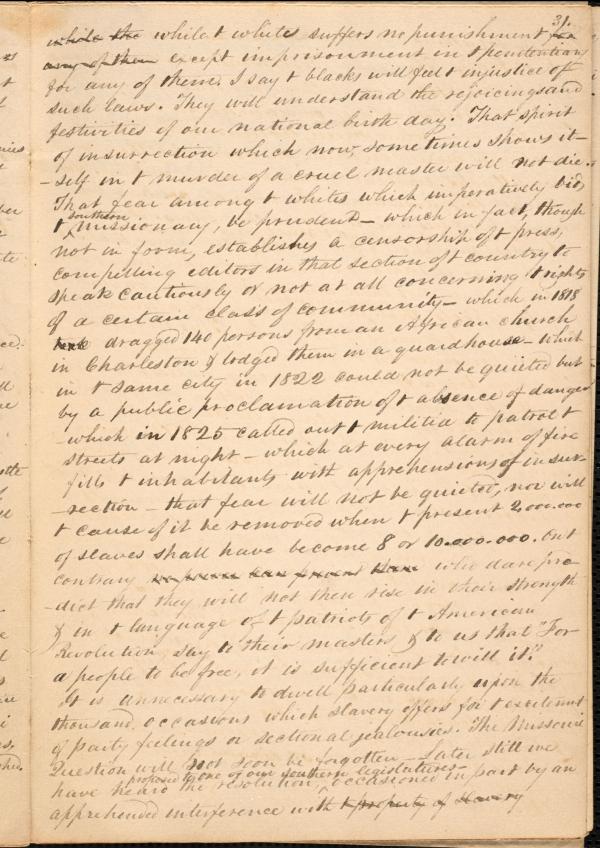 31.
while the while t whites suffers no punishment for
any of them except imprisonment in t penitentiary
for any of them. I say t blacks will feel t injustice of
such laws. They will understand the rejoicings and
festivities of our national birth day. That spirit
of insurrection which now sometimes shows it-
-self in t murder of a cruel master will not die.
That fear among t whites which imperatively bids
t southern missionary, be prudent – which in fact, though
not in form, establishes a censorship of t press,
compelling editors in that section of t country to
speak cautiously or not at all concerning t rights
of a certain class of community – which in 1818
dragged 140 persons from an African church
in Charleston & lodged them in a guardhouse – which
in t same city in 1822 could not be quieted but
by a public proclamation of t absence of danger
– which in 1825 called out t militia to patrol t
streets at night – which at every alarm of fire
fills t inhabitants with apprehensions of insur-
-rection – that fear will not be quieted, nor will
t cause of it be removed when t present 2,000.000
of slaves shall have become 8 or 10.000.000. On t
contrary who dare pre
-dict that they will not then rise in their strength
& in t language of t patriots of t American
Revolution, say to their masters, & to us that "For
a people to be free, it is sufficient to will it."
It is unnecessary to dwell particularly upon the
thousand occasions which slavery offers for t excitement
of party feelings or sectional jealousies. The Missouri
Question will not soon be fogotten – Later still we
have heard the resolution, proposed to one of our southern legislatures – occasioned in part by an
apprehended interference with t property of slavery